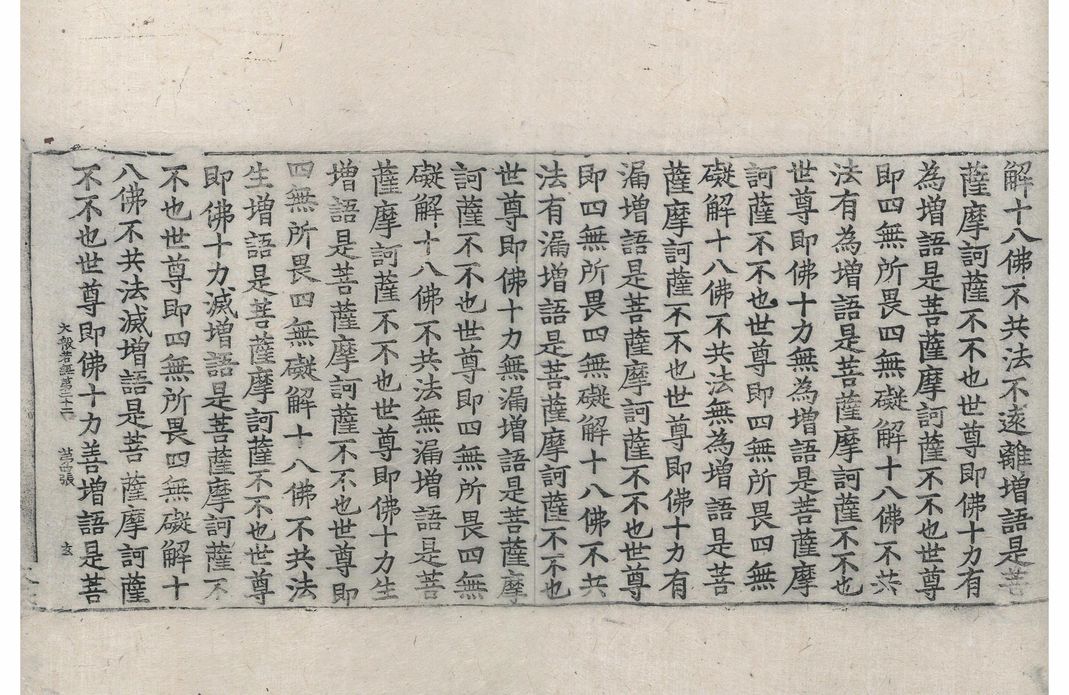 解十八佛不共法不遠離增語是菩
薩摩訶薩不不也世尊即佛十力有
為增語是菩薩摩訶薩不不也世尊
即四無所畏四無礙解十八佛不共
法有為增語是菩薩摩訶薩不不也
世尊即佛十力無為增語是菩薩摩
訶薩不不也世尊即四無所畏四無
礙解十八佛不共法無為增語是菩
薩摩訶薩不不也世尊即佛十力有
漏增語是菩薩摩訶薩不不也世尊
即四無所畏四無礙解十八佛不共
法有漏增語是菩薩摩訶薩不不也
世尊即佛十力無漏增語是菩薩摩
訶薩不不也世尊即四無所畏四無
礙解十八佛不共法無漏增語是菩
薩摩訶薩不不也世尊即佛十力生
增語是菩薩摩訶薩不不也世尊即
四無所畏四無礙解十八佛不共法
生增語是菩薩摩訶薩不不也世尊
即佛十力滅增語是菩薩摩訶薩不
不也世尊即四無所畏四無礙解十
八佛不共法滅增語是菩薩摩訶薩
不不也世尊即佛十力善增語是菩
大般若經第二十二 張 玄